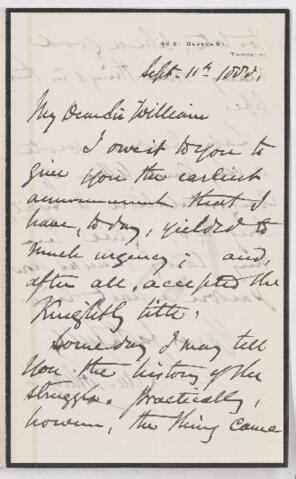 George St.
Toronto.
Sept. 11th 188
My Dear Sir William
I owe it to you to
give you the earliest
announcement that I
have, to-day, yielded to
much urgency; and,
after all, accepted the
Knightly title.
Some day I may tell
you the history of the
struggle. Practically,
however, the thing came